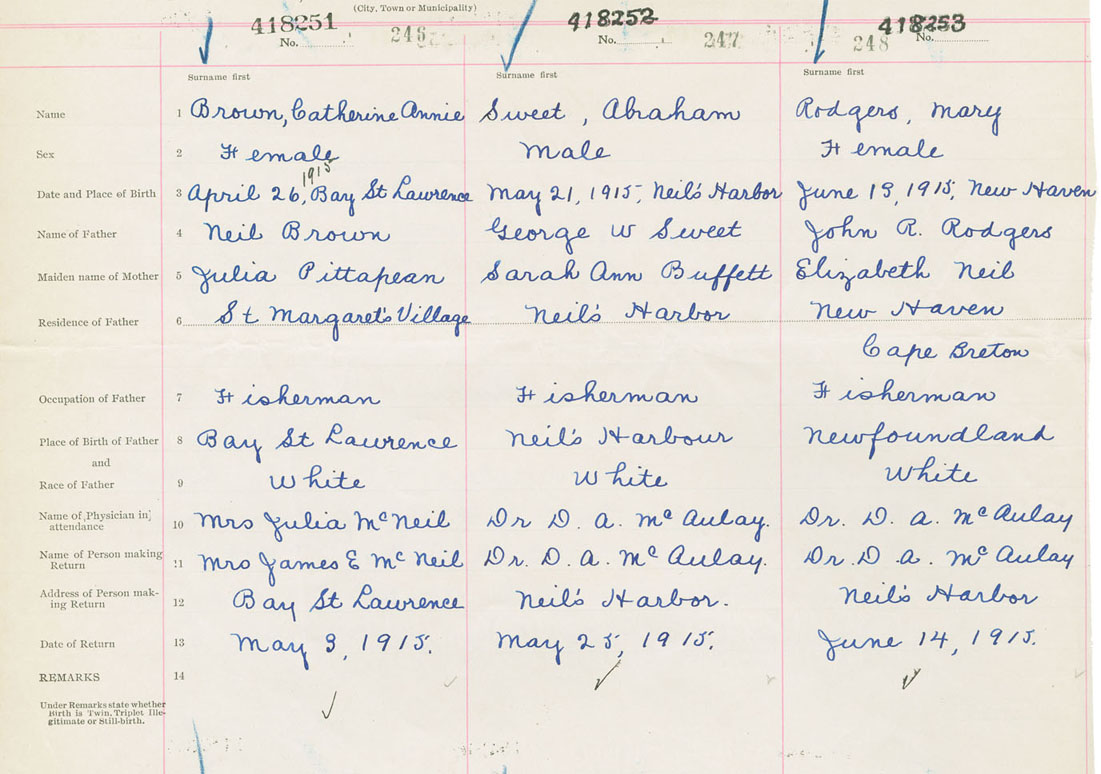 (City, Town or Municipality)
418251 418252 418253
No. 246 No. 247 248 No.
Surname first Surname first Surname first
Name 1 Brown, Catherine Annie Sweet, Abraham Rodgers, Mary
Sex 2 Female Male Female
1915
Date and Place of Birth 3 April 26, Bay St Lawrence May 21, 1915, Neil's Harbor June 13, 1915, New Haven
Name of Father 4 Neil Brown George W Sweet John R. Rodgers
Maiden name of Mother 5 Julia Pittapean Sarah Ann Buffett Elizabeth Neil
Residence of Father 6 St Margaret's Village Neil's Harbor New Haven
Cape Breton
Occupation of Father 7 Fisherman Fisherman Fisherman
Place of Birth of Father 8 Bay St Lawrence Neil's Harbour Newfoundland
and
Race of Father 9 White White White
Name of Physician in attendance 10 Mrs Julia McNeil Dr D. A. McAulay. Dr. D. A. McAulay
Name of Person making Return 11 Mrs James E McNeil Dr. D. A. McAulay. Dr. D. A. McAulay
Address of Person mak-ing Return 12 Bay St Lawrence Neil's Harbor. Neil's Harbor
Date of Return 13 May 3, 1915. May 25, 1915. June 14, 1915.
REMARKS 14
Under Remarks state whether
Birth is Twin, Triplet Ille-
gitimate or Still-birth.